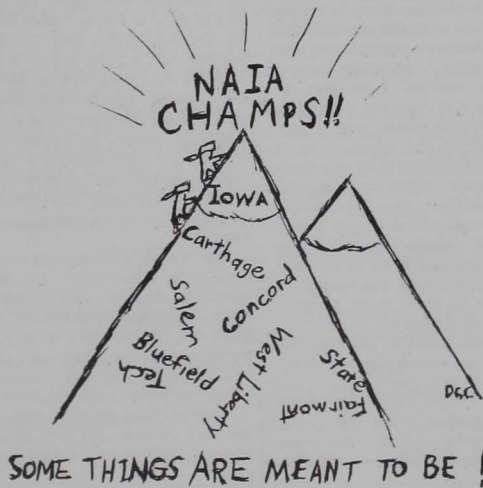 NAIA
CHAMPS!!
IOWA
Carthage
Salem
Concord
Bluefield
Tech
West Liberty
State
Fairmont
DGC
SOME THINGS ARE MEANT TO BE !